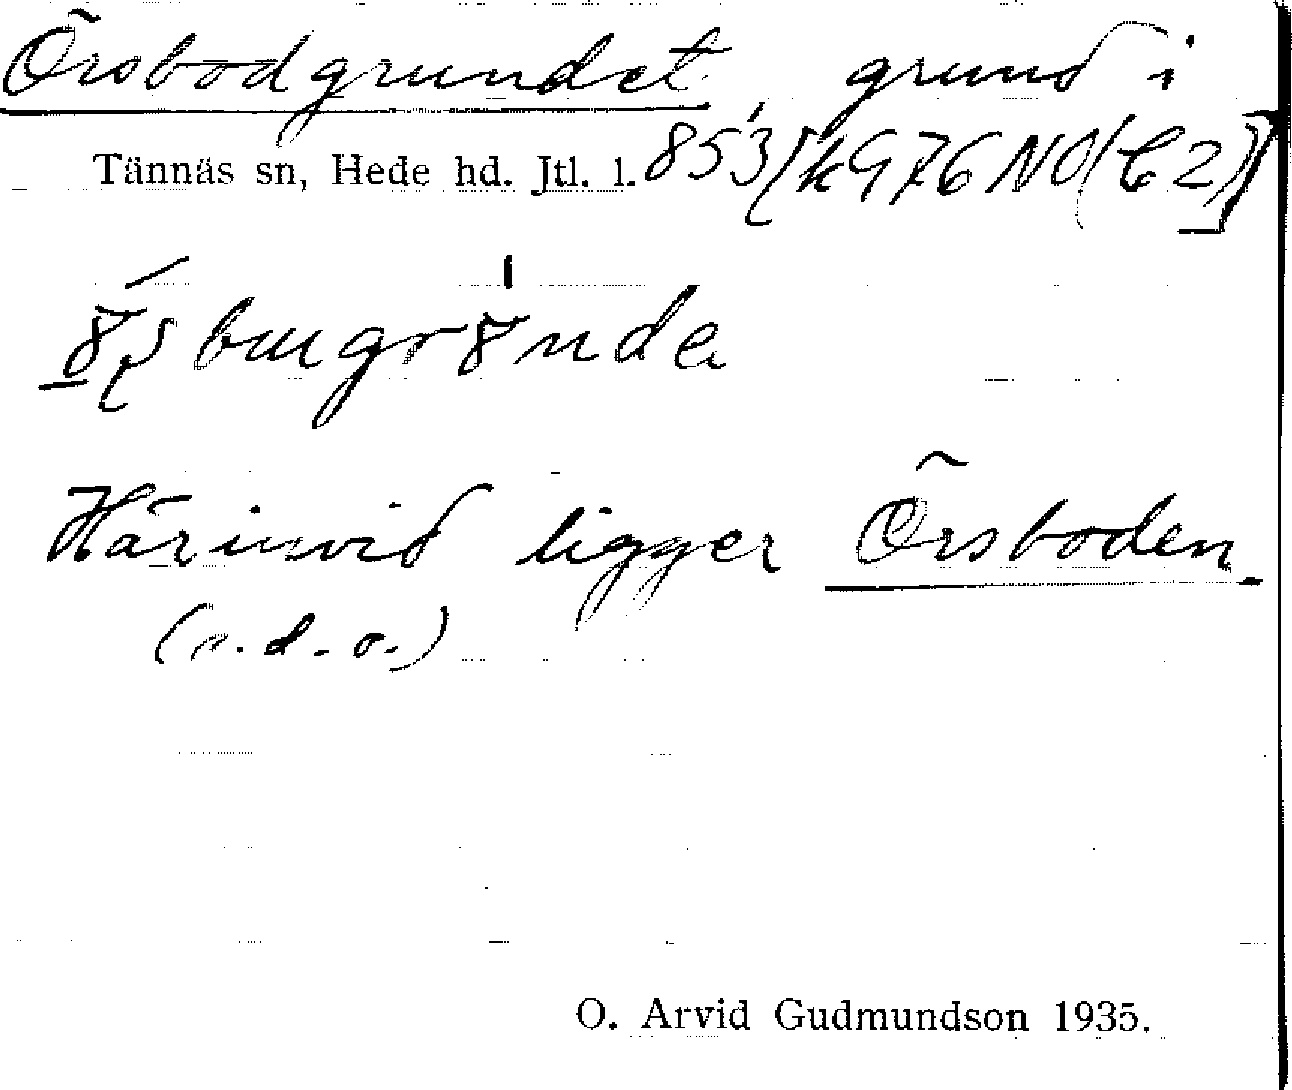 Örsbodgrundet, grund i
Tännäs sn, Hede hd. Jtl. l. 853 [kg 76 NO (C 2)]
Härinvid ligger Örsboden.
(s.d.o.)
O. Arvid Gudmundson 1935.